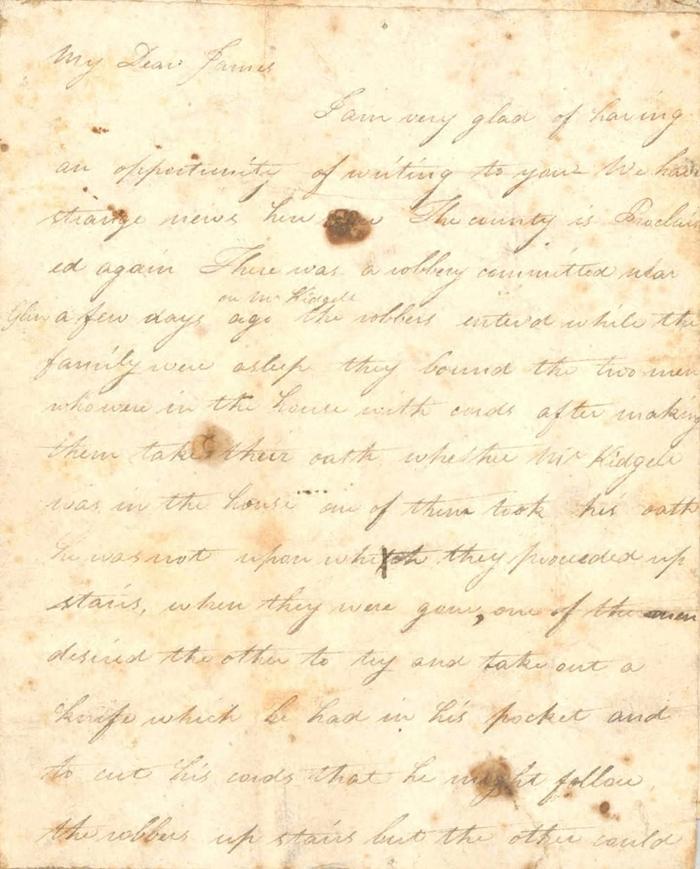 My Dear James
I am very glad of having
an opportunity of writing to you We have
strange news here The county is Proclaim
ed again There was a robbery committed near
on Mr Kidgell
Glin a few days ago the robbers enterd while the
family were asleep they bound the two men
who were in the house with cords after making
them take their oath whether Mr Kidgell
was in the house one of them took his oath
he was not upon which they proceeded up
stairs, when they were gone, one of the men
desired the other to try and take out a
knife which he had in his pocket and
to cut his cords that he might follow
the robbers up stairs but the other could